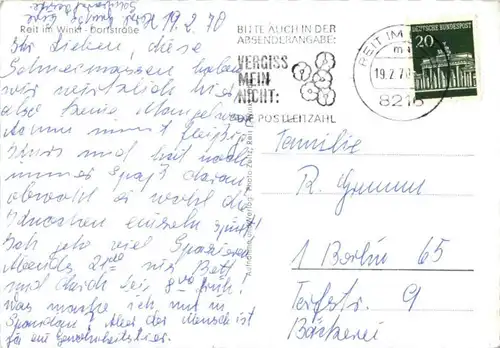 Reit im Winkl - Dorfstraße
19.2.70
Ihr Lieben, diese
Schneemassen haben
wir wirklich hier
also keine Mangelware
nimmt fleißig
Kurs und hat noch
immer Spaß daran
obwohl er wohl die
Knochen einzeln spürt!
Ich gehe viel Spazieren
Abends 21.00 ins Bett
und durch bis 8.00 früh!
was mache ich nur in
Spandau? Aber der Mensch ist
für ein Gewohnheitstier.
BITTE AUCH IN DER
ABSENDERANGABE:
VERGISS
MEIN
NICHT:
DIE POSTLEITZAHL
REIT IM
19.2.70
8216
DEUTSCHE BUNDESPOST
20
Familie
R. Grumm
1 Berlin 65
9
Bäckerei